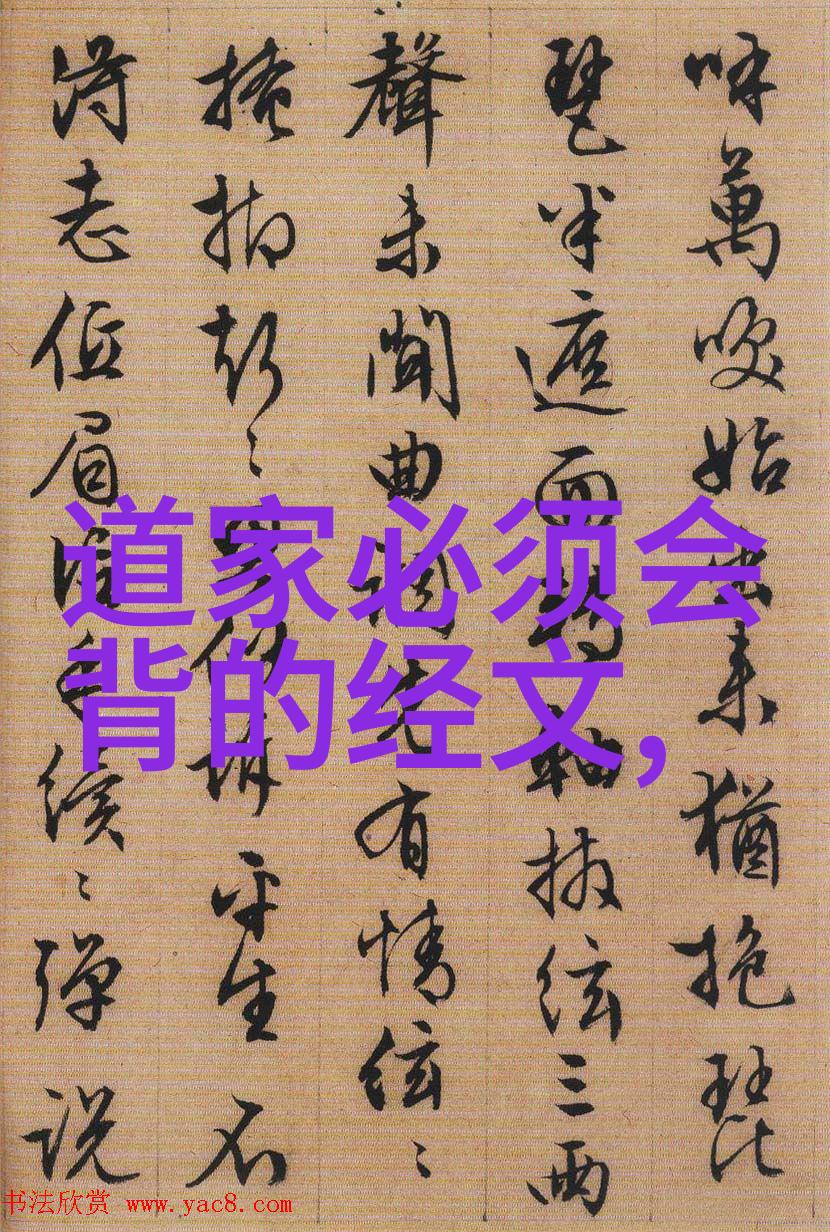 呼萬喚始出来猶抱琵
琶半遮面轉軸撥絃三兩
聲未聞曲調先有情絃〻
掩抑聲〻思似訴平生不
得志低眉信手續〻彈說
道家必须会
背的经文,
书法欣赏 www.yac8.com